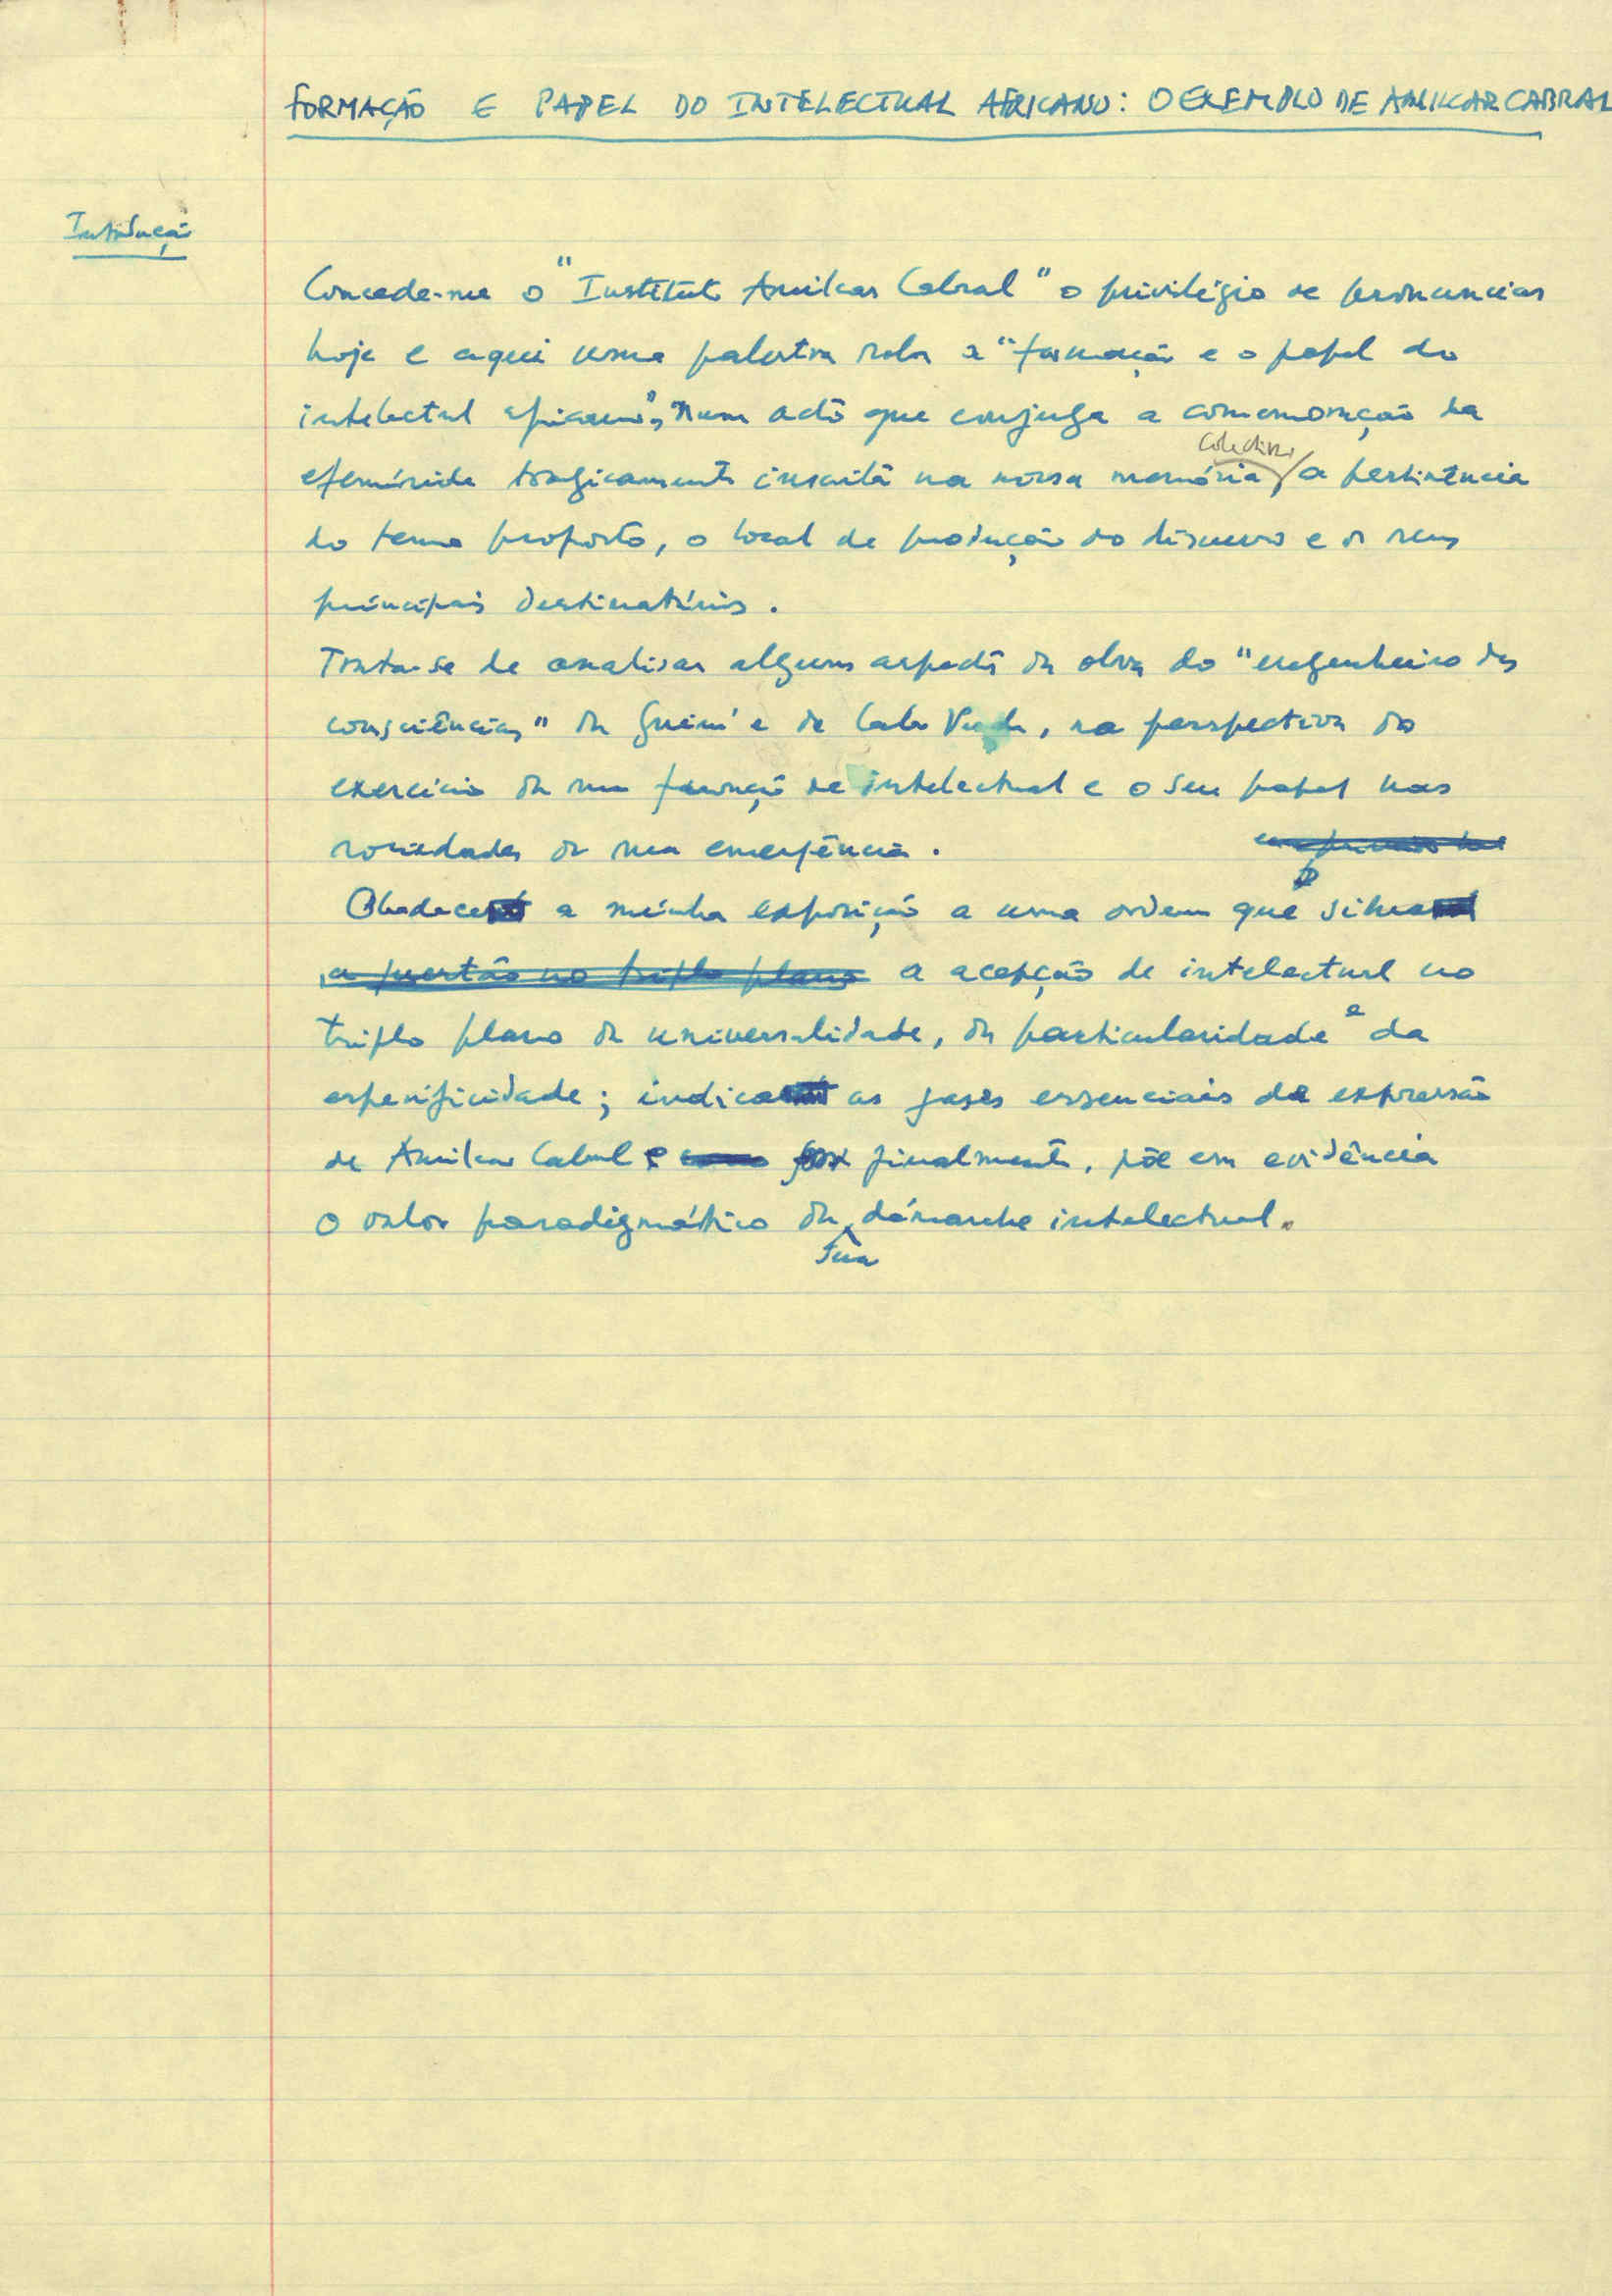 FORMAÇÃO E PAPEL DO INTELECTUAL AFRICANO: O EXEMPLO DE AMILCAR CABRAL
Introdução
Concede-me o "Instituto Amilcar Cabral" o privilégio de pronunciar
hoje e aqui uma palestra sobre a "formação e o papel do
intelectual africano", num acto que conjuga a comemoração da
colectiva
efeméride tragicamente inscrita na nossa memória, a pertinência
do tema proposto, o local de produção do discurso e os seus
principais destinatários.
Trata-se de analisar alguns aspectos da obra do "engenheiro das
consciências" da Guiné e de Cabo Verde, na perspectiva do
exercício da sua função de intelectual e o seu papel nas
sociedades da sua emergência.
Obedece a minha exposição a uma ordem que situa
a questão no triplo plano a acepção de intelectual no
triplo plano da universalidade, da particularidade e da
especificidade; indica as fases essenciais da expressão
de Amilcar Cabral e finalmente, põe em evidência
o valor paradigmático da démarche intelectual.
sua